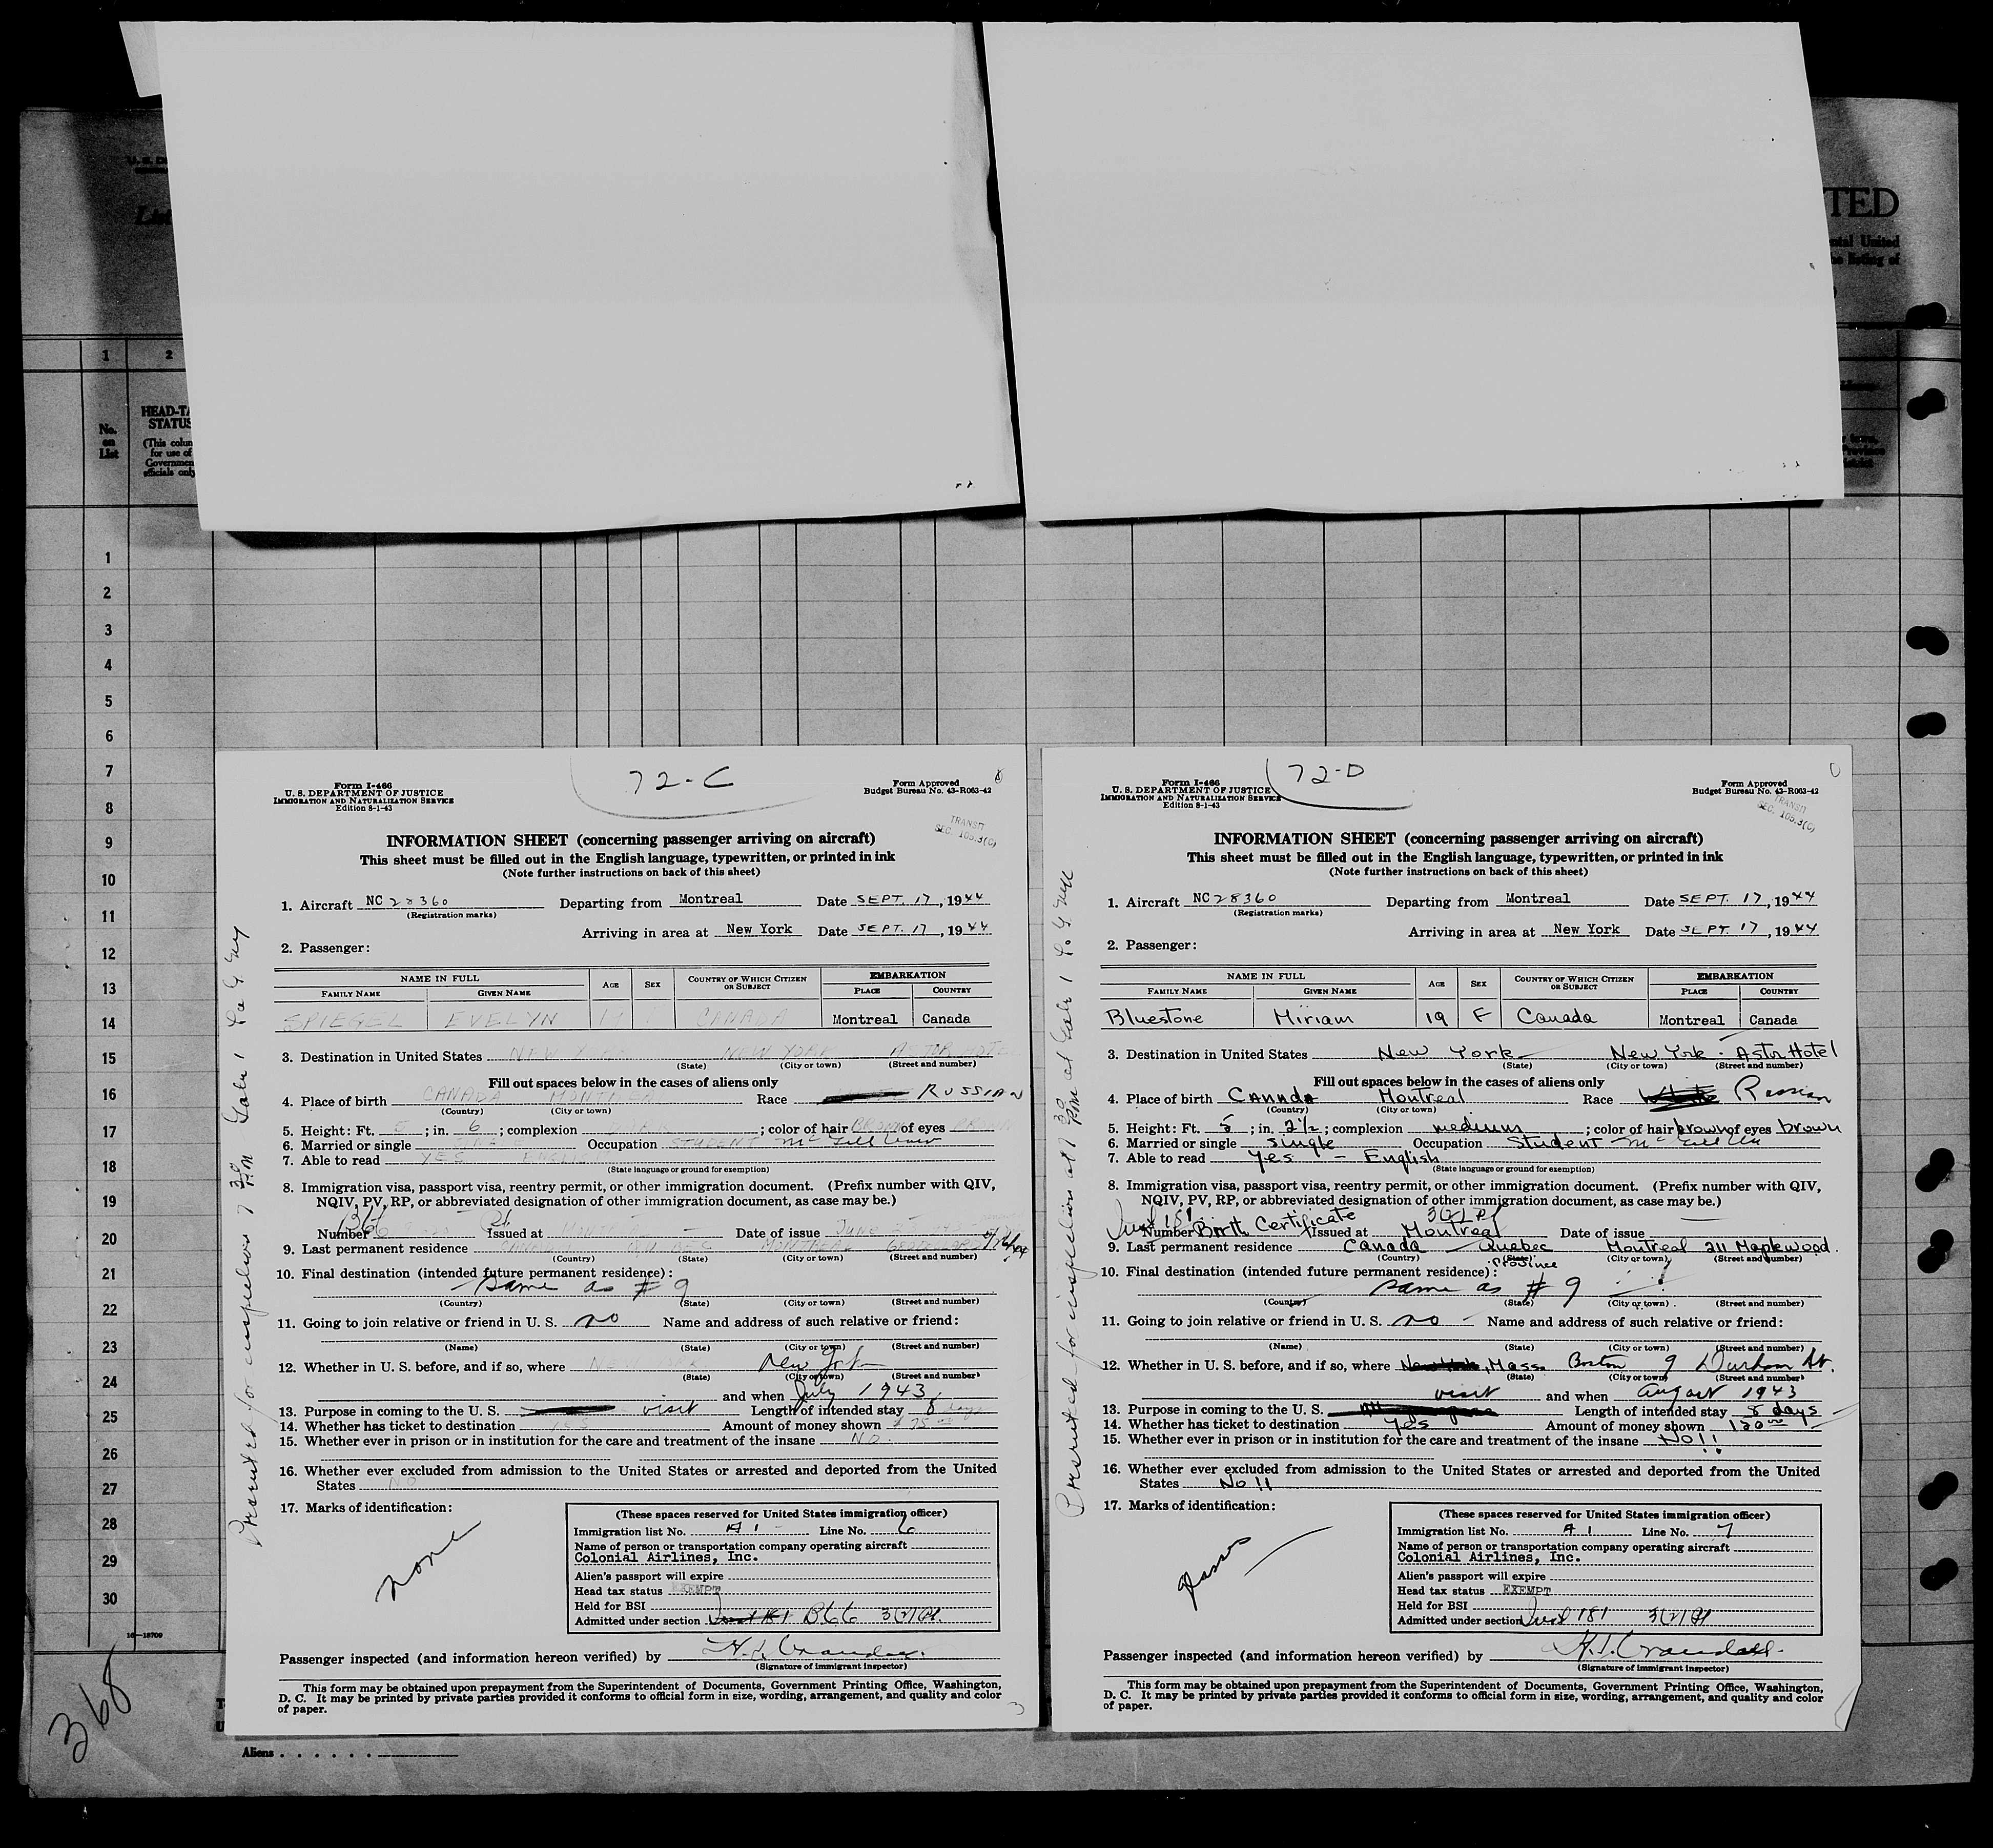 U. S. D
List
TED
ntal United
he listing of
1
2
No.
on
List
HEAD-TA
STATUS
(This colum
for use of
Governmen
officials only
1
2
3
4
5
6
7
8
9
10
11
12
13
14
15
16
17
18
19
20
21
22
23
24
25
26
27
28
29
30
16—18700
368
Aliens . . . . . .
72-C
Form I-466
U. S. DEPARTMENT OF JUSTICE
IMMIGRATION AND NATURALIZATION SERVICE
Edition 8-1-43
Form Approved
Budget Bureau No. 43-R063-42
TRANSIT
SEC. 105.3(C)
INFORMATION SHEET (concerning passenger arriving on aircraft)
This sheet must be filled out in the English language, typewritten, or printed in ink
(Note further instructions on back of this sheet)
1. Aircraft NC 28360 Departing from Montreal Date SEPT. 17, 1944
(Registration marks)
Arriving in area at New York Date SEPT. 17, 1944
2. Passenger:
NAME IN FULL AGE SEX COUNTRY OF WHICH CITIZEN OR SUBJECT EMBARKATION
FAMILY NAME GIVEN NAME PLACE COUNTRY
SPIEGEL EVELYN CANADA Montreal Canada
3. Destination in United States NEW YORK NEW YORK ASTOR HOTEL
(State) (City or town) (Street and number)
Fill out spaces below in the cases of aliens only
4. Place of birth CANADA MONTREAL Race RUSSIAN
(Country) (City or town)
5. Height: Ft. 5; in. 6; complexion ; color of hair BROWN of eyes
6. Married or single SINGLE Occupation STUDENT McGill Univ
7. Able to read YES ENGLISH
(State language or ground for exemption)
8. Immigration visa, passport visa, reentry permit, or other immigration document. (Prefix number with QIV,
NQIV, PV, RP, or abbreviated designation of other immigration document, as case may be.)
Number Issued at MONTREAL Date of issue JUNE
9. Last permanent residence CANADA QUEBEC MONTREAL
(Country) (State) (City or town) (Street and number)
10. Final destination (intended future permanent residence):
same as # 9
(Country) (State) (City or town) (Street and number)
11. Going to join relative or friend in U. S. no Name and address of such relative or friend:
(Name) (State) (City or town) (Street and number)
12. Whether in U. S. before, and if so, where NEW YORK New York
(State) (City or town) (Street and number)
and when July 1943
13. Purpose in coming to the U. S. visit Length of intended stay 8 days
14. Whether has ticket to destination YES Amount of money shown $75
15. Whether ever in prison or in institution for the care and treatment of the insane NO.
16. Whether ever excluded from admission to the United States or arrested and deported from the United
States NO
17. Marks of identification:
none
(These spaces reserved for United States immigration officer)
Immigration list No. A 1 Line No. 6
Name of person or transportation company operating aircraft
Colonial Airlines, Inc.
Alien's passport will expire
Head tax status EXEMPT
Held for BSI
Admitted under section B66 3(2)
Passenger inspected (and information hereon verified) by H. I. Crandall
(Signature of immigrant inspector)
This form may be obtained upon prepayment from the Superintendent of Documents, Government Printing Office, Washington,
D. C. It may be printed by private parties provided it conforms to official form in size, wording, arrangement, and quality and color
of paper.
Presented for inspection 7 30 PM
72-D
Form I-466
U. S. DEPARTMENT OF JUSTICE
IMMIGRATION AND NATURALIZATION SERVICE
Edition 8-1-43
Form Approved
Budget Bureau No. 43-R063-42
TRANSIT
SEC. 105.3(C)
INFORMATION SHEET (concerning passenger arriving on aircraft)
This sheet must be filled out in the English language, typewritten, or printed in ink
(Note further instructions on back of this sheet)
1. Aircraft NC 28360 Departing from Montreal Date SEPT. 17, 1944
(Registration marks)
Arriving in area at New York Date SEPT. 17, 1944
2. Passenger:
NAME IN FULL AGE SEX COUNTRY OF WHICH CITIZEN OR SUBJECT EMBARKATION
FAMILY NAME GIVEN NAME PLACE COUNTRY
Bluestone Miriam 19 F Canada Montreal Canada
3. Destination in United States New York New York - Astor Hotel
(State) (City or town) (Street and number)
Fill out spaces below in the cases of aliens only
4. Place of birth Canada Montreal Race White Russian
(Country) (City or town)
5. Height: Ft. 5; in. 2 1/2; complexion medium; color of hair brown of eyes brown
6. Married or single single Occupation Student McGill Un
7. Able to read yes - English
(State language or ground for exemption)
8. Immigration visa, passport visa, reentry permit, or other immigration document. (Prefix number with QIV,
NQIV, PV, RP, or abbreviated designation of other immigration document, as case may be.)
Number Birth Certificate Issued at Montreal Date of issue
9. Last permanent residence Canada Quebec Montreal 211 Maplewood.
(Country) (State) Province (City or town) (Street and number)
10. Final destination (intended future permanent residence):
same as # 9
(Country) (State) (City or town) (Street and number)
11. Going to join relative or friend in U. S. no - Name and address of such relative or friend:
(Name) (State) (City or town) (Street and number)
12. Whether in U. S. before, and if so, where New York, Mass. Boston 9 Durham St.
(State) (City or town) (Street and number)
visit and when August 1943
13. Purpose in coming to the U. S. Length of intended stay 8 days
14. Whether has ticket to destination Yes Amount of money shown
15. Whether ever in prison or in institution for the care and treatment of the insane No!!
16. Whether ever excluded from admission to the United States or arrested and deported from the United
States No!!
17. Marks of identification:
(These spaces reserved for United States immigration officer)
Immigration list No. A 1 Line No. 7
Name of person or transportation company operating aircraft
Colonial Airlines, Inc.
Alien's passport will expire
Head tax status EXEMPT
Held for BSI
Admitted under section 181 3(2)
Passenger inspected (and information hereon verified) by H. I. Crandall
(Signature of immigrant inspector)
This form may be obtained upon prepayment from the Superintendent of Documents, Government Printing Office, Washington,
D. C. It may be printed by private parties provided it conforms to official form in size, wording, arrangement, and quality and color
of paper.
Presented for inspection at 7 30 PM